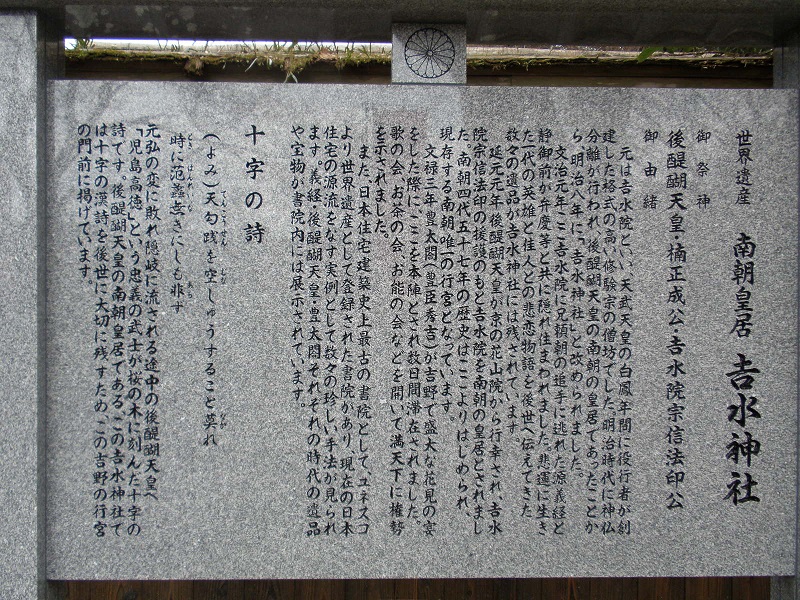 世界遺産 南朝皇居 吉水神社
御祭神
後醍醐天皇・楠正成公・吉水院宗信法印公
御由緒
元は吉水院といい、天武天皇の白鳳年間に役行者が創
建した格式の高い修験宗の僧坊でした。明治時代に神仏
分離が行われ、後醍醐天皇の南朝の皇居であったことか
ら、明治八年に「吉水神社」と改められました。
文治元年ここ吉水院に兄頼朝の追手に逃れた源義経と
静御前が弁慶等と共に隠れ住まわれました。悲運に生き
た一代の英雄と佳人との悲恋物語を後世へ伝えてきた
数々の遺品が吉水神社には残されています。
延元元年後醍醐天皇が京の花山院から行幸され、吉水
院宗信法印の援護のもと吉水院を南朝の皇居とされまし
た。南朝四代五十七年の歴史はここよりはじめられ、
現存する南朝唯一の行宮となっています。
文禄三年豊太閤(豊臣秀吉)が吉野で盛大な花見の宴
をした際に、ここを本陣とされ数日間滞在されました。
歌の会、お茶の会、お能の会などを開いて満天下に権勢
を示されました。
また、日本住宅建築史上最古の書院として、ユネスコ
より世界遺産として登録された書院があり、現在の日本
住宅の源流をなす実例として数々の珍しい手法が見られ
ます。義経・後醍醐天皇・豊太閤それぞれの時代の遺品
や宝物が書院内には展示されています。
十字の詩
(よみ)天勾践を空しゅうすること莫れ
時に范蠡無きにしも非ず
元弘の変に敗れ隠岐に流される途中の後醍醐天皇へ
「児島高徳」という忠義の武士が桜の木に刻んだ十字の
詩です。後醍醐天皇の南朝皇居である、この吉水神社で
は十字の漢詩を後世に大切に残すため、この吉野の行宮
の門前に掲げています。